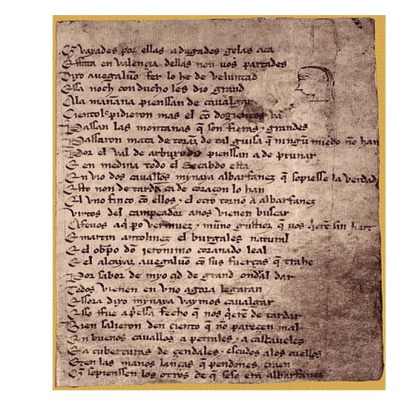 Vayades por ellas adugades gelas aca
ffata en valençia dellas non uos partades
Dixo auegaluon fer lo he de veluntad
Essa noch conducho les dio grand
Ala mañana pienssan de caualgar
Çientol pidieron mas el con dozientos va
Passan las montanas que son fieras & grandes
Passaron mata de toranz de tal guisa que ningun miedo non han
Por el val de arbuxedo pienssan a deprunar
E en medina todo el Recabdo esta
Envio dos caualleros mynaya albarfanez que sopiesse la verdad
Esto non detarda ca de coraçon lo han
El vno finco con ellos & el otro torno a albarfanez
virtos del campeador anos vienen buscar
Afeuos aqui pero vermuez & muño gustioz que uos quieren sin hart
E martin antolinez el burgales natural
E el obispo don Jeronimo coranado leal
E el alcayaz auegaluon con sus fuerças que trahe
Por sabor de myo çid de grand ondral dar
Todos vienen en vno agora legaran
Essora dixo mynaya vaymos caualgar
Esso ffue apriessa fecho que nos quieren detardar
Bien salieron den çiento que non pareçen mal
En buenos cauallos a petrales & a cascaueles
E a cuberturas de çendales & escudos alos cuellos
E en las manos lanças que pendones traen
Que sopienssen los otros de que seso era albarfanez